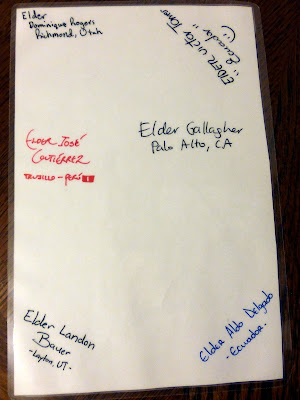 Elder
Dominique Rogers
Richmond, Utah
ELDER Victor Torres
"Ecuador"
Elder Gallagher
Palo Alto, CA
ELDER JOSÉ
GUTIÉRREZ
TRUJILLO - PERÚ
Elder Landon
Bauer
-Layton, UT-
Elder Aldo Delgado
-Ecuador-